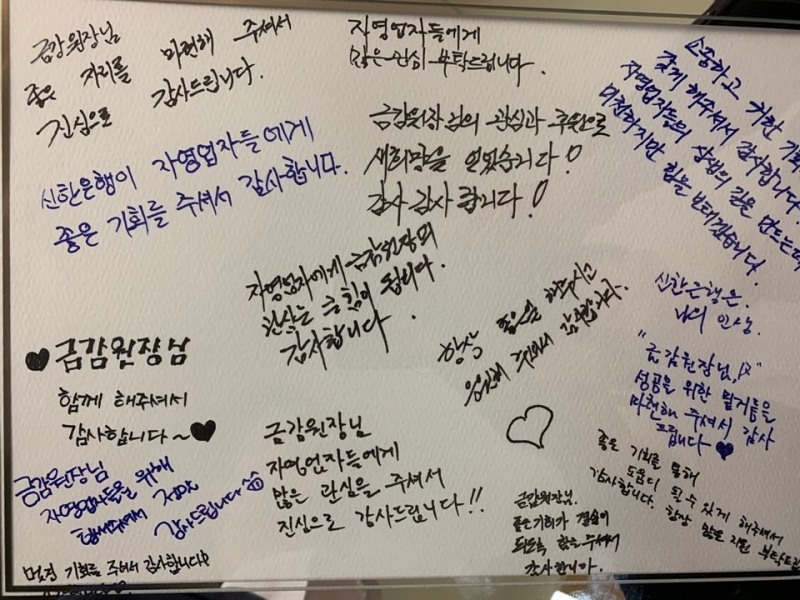 금감원장님
좋은 자리를 마련해 주셔서
진심으로 감사드립니다.
자영업자들에게
많은 관심 부탁드립니다.
소중하고 귀한 기회
갖게 해주셔서 감사합니다.
자영업자들의 상생의 길을 만드는데
미천하지만 힘을 보태겠습니다
금감원장님의 관심과 후원으로
새희망을 얻었습니다!
감사 감사 합니다!
신한은행이 자영업자들에게
좋은 기회를 주셔서 감사합니다.
자영업자에게 금감원장의
관심은 큰 힘이 됩니다.
감사합니다.
항상 해주시고
주셔서 감사합니다.
신한은행은.
나의 인생.
"금감원장님,"
성공을 위한 밑거름을
마련해 주셔서 감사
드립니다 ♥
♥ 금감원장님
함께 해주셔서
감사합니다~♥
금감원장님
자영업자들을 위해
힘써주셔서 정말
감사드립니다
금감원장님
자영업자들에게
많은 관심을 주셔서
진심으로 감사드립니다!!
좋은 기회를 통해
도움이 될 수 있게 해주셔서
감사합니다. 항상 많은 지원 부탁드립
금감원장님.
좋은기회가 결실이
되도록 힘을 주셔서
감사합니다.
멋진 기회를 주셔서 감사합니다!